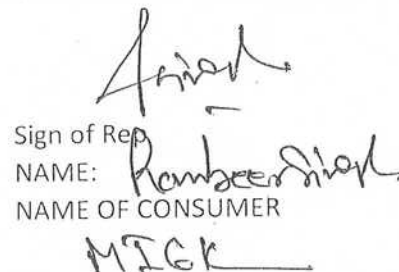 Sign of Rep
NAME: Ranbeer Singh
NAME OF CONSUMER
MIGK